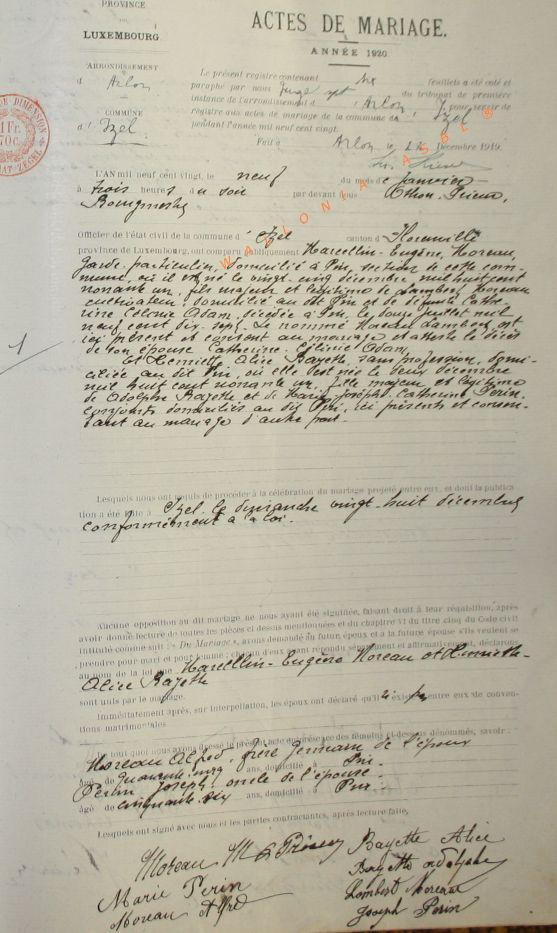 PROVINCE
DU
LUXEMBOURG
ARRONDISSEMENT
d' Arlon
COMMUNE
d' Izel
ACTES DE MARIAGE.
ANNÉE 1920.
Le présent registre contenant feuillets a été coté et
paraphé par nous Juge du tribunal de première
instance de l'arrondissement d' Arlon pour servir de
registre aux actes de mariage de la commune d' Izel
pendant l'année mil neuf cent vingt.
Fait à Arlon, le Décembre 1919.
WALLONIA ASBL ®
L'AN mil neuf cent vingt, le neuf du mois de Janvier
à trois heures du soir par devant nous Athon,
Bourgmestre
Officier de l'état civil de la commune d' Izel canton d' Florenville
province de Luxembourg, ont comparu publiquement Marcellin-Eugène, Moreau,
garde particulier, domicilié à Pin, section de cette com-
mune, où il est né le vingt-cinq décembre mil huit cent
nonante un, fils majeur et légitime de Lambert Moreau
cultivateur, domicilié au dit Pin et de défunte Cathe-
rine Adam, décédée à Pin, le douze juillet mil
neuf cent dix-sept. Le nommé Moreau Lambert est
ici présent et consent au mariage et atteste le décès
de son épouse Catherine Adam
Et Alice Bayette, sans profession, domi-
ciliée au dit Pin, où elle est née le deux décembre
mil huit cent nonante un, fille majeure et légitime
de Adolphe Bayette et de Marie-Josèphe-Catherine Perin,
conjoints domiciliés au dit Pin, ici présents et consen-
tant au mariage d'autre part.
Lesquels nous ont requis de procéder à la célébration du mariage projeté entre eux, et dont la publica-
tion a été faite à Izel le dimanche vingt-huit décembre
conformément à la loi.
Aucune opposition au dit mariage ne nous ayant été signifiée, faisant droit à leur réquisition, après
avoir donné lecture de toutes les pièces ci dessus mentionnées et du chapitre VI du titre cinq du Code civil
intitulé comme suit : « Du Mariage », avons demandé au futur époux et à la future épouse s'ils veulent se
prendre pour mari et pour femme ; chacun d'eux ayant répondu séparément et affirmativement, déclarons
au nom de la loi que Marcellin-Eugène Moreau et Henriette-
Alice Bayette
sont unis par le mariage.
Immédiatement après, sur interpellation, les époux ont déclaré qu'il existe entre eux de conven-
tions matrimoniales.
De tout quoi nous avons dressé le présent acte en présence des témoins ci-dessous dénommés, savoir :
Moreau Alfred, frère germain de l'époux
âgé de quarante ans, domicilié à Pin.
Perin Joseph, oncle de l'épouse
âgé de cinquante-six ans, domicilié à Pin.
Lesquels ont signé avec nous et les parties contractantes, après lecture faite,
Moreau M E Bayette Alice
Bayette Adolphe
Marie Perin Lambert Moreau
Moreau Alfred Joseph Perin